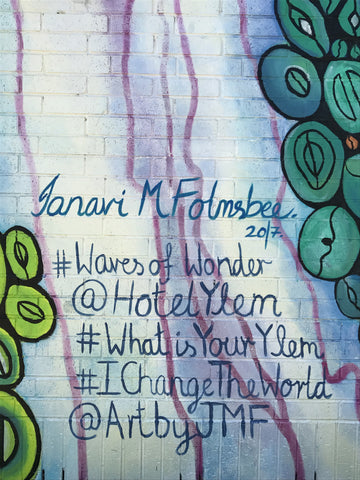 Janavi M Folmsbee.
2017.
#Waves of Wonder
@HotelYlem
#WhatisYourYlem
#IChangeTheWorld
@ArtbyJMF